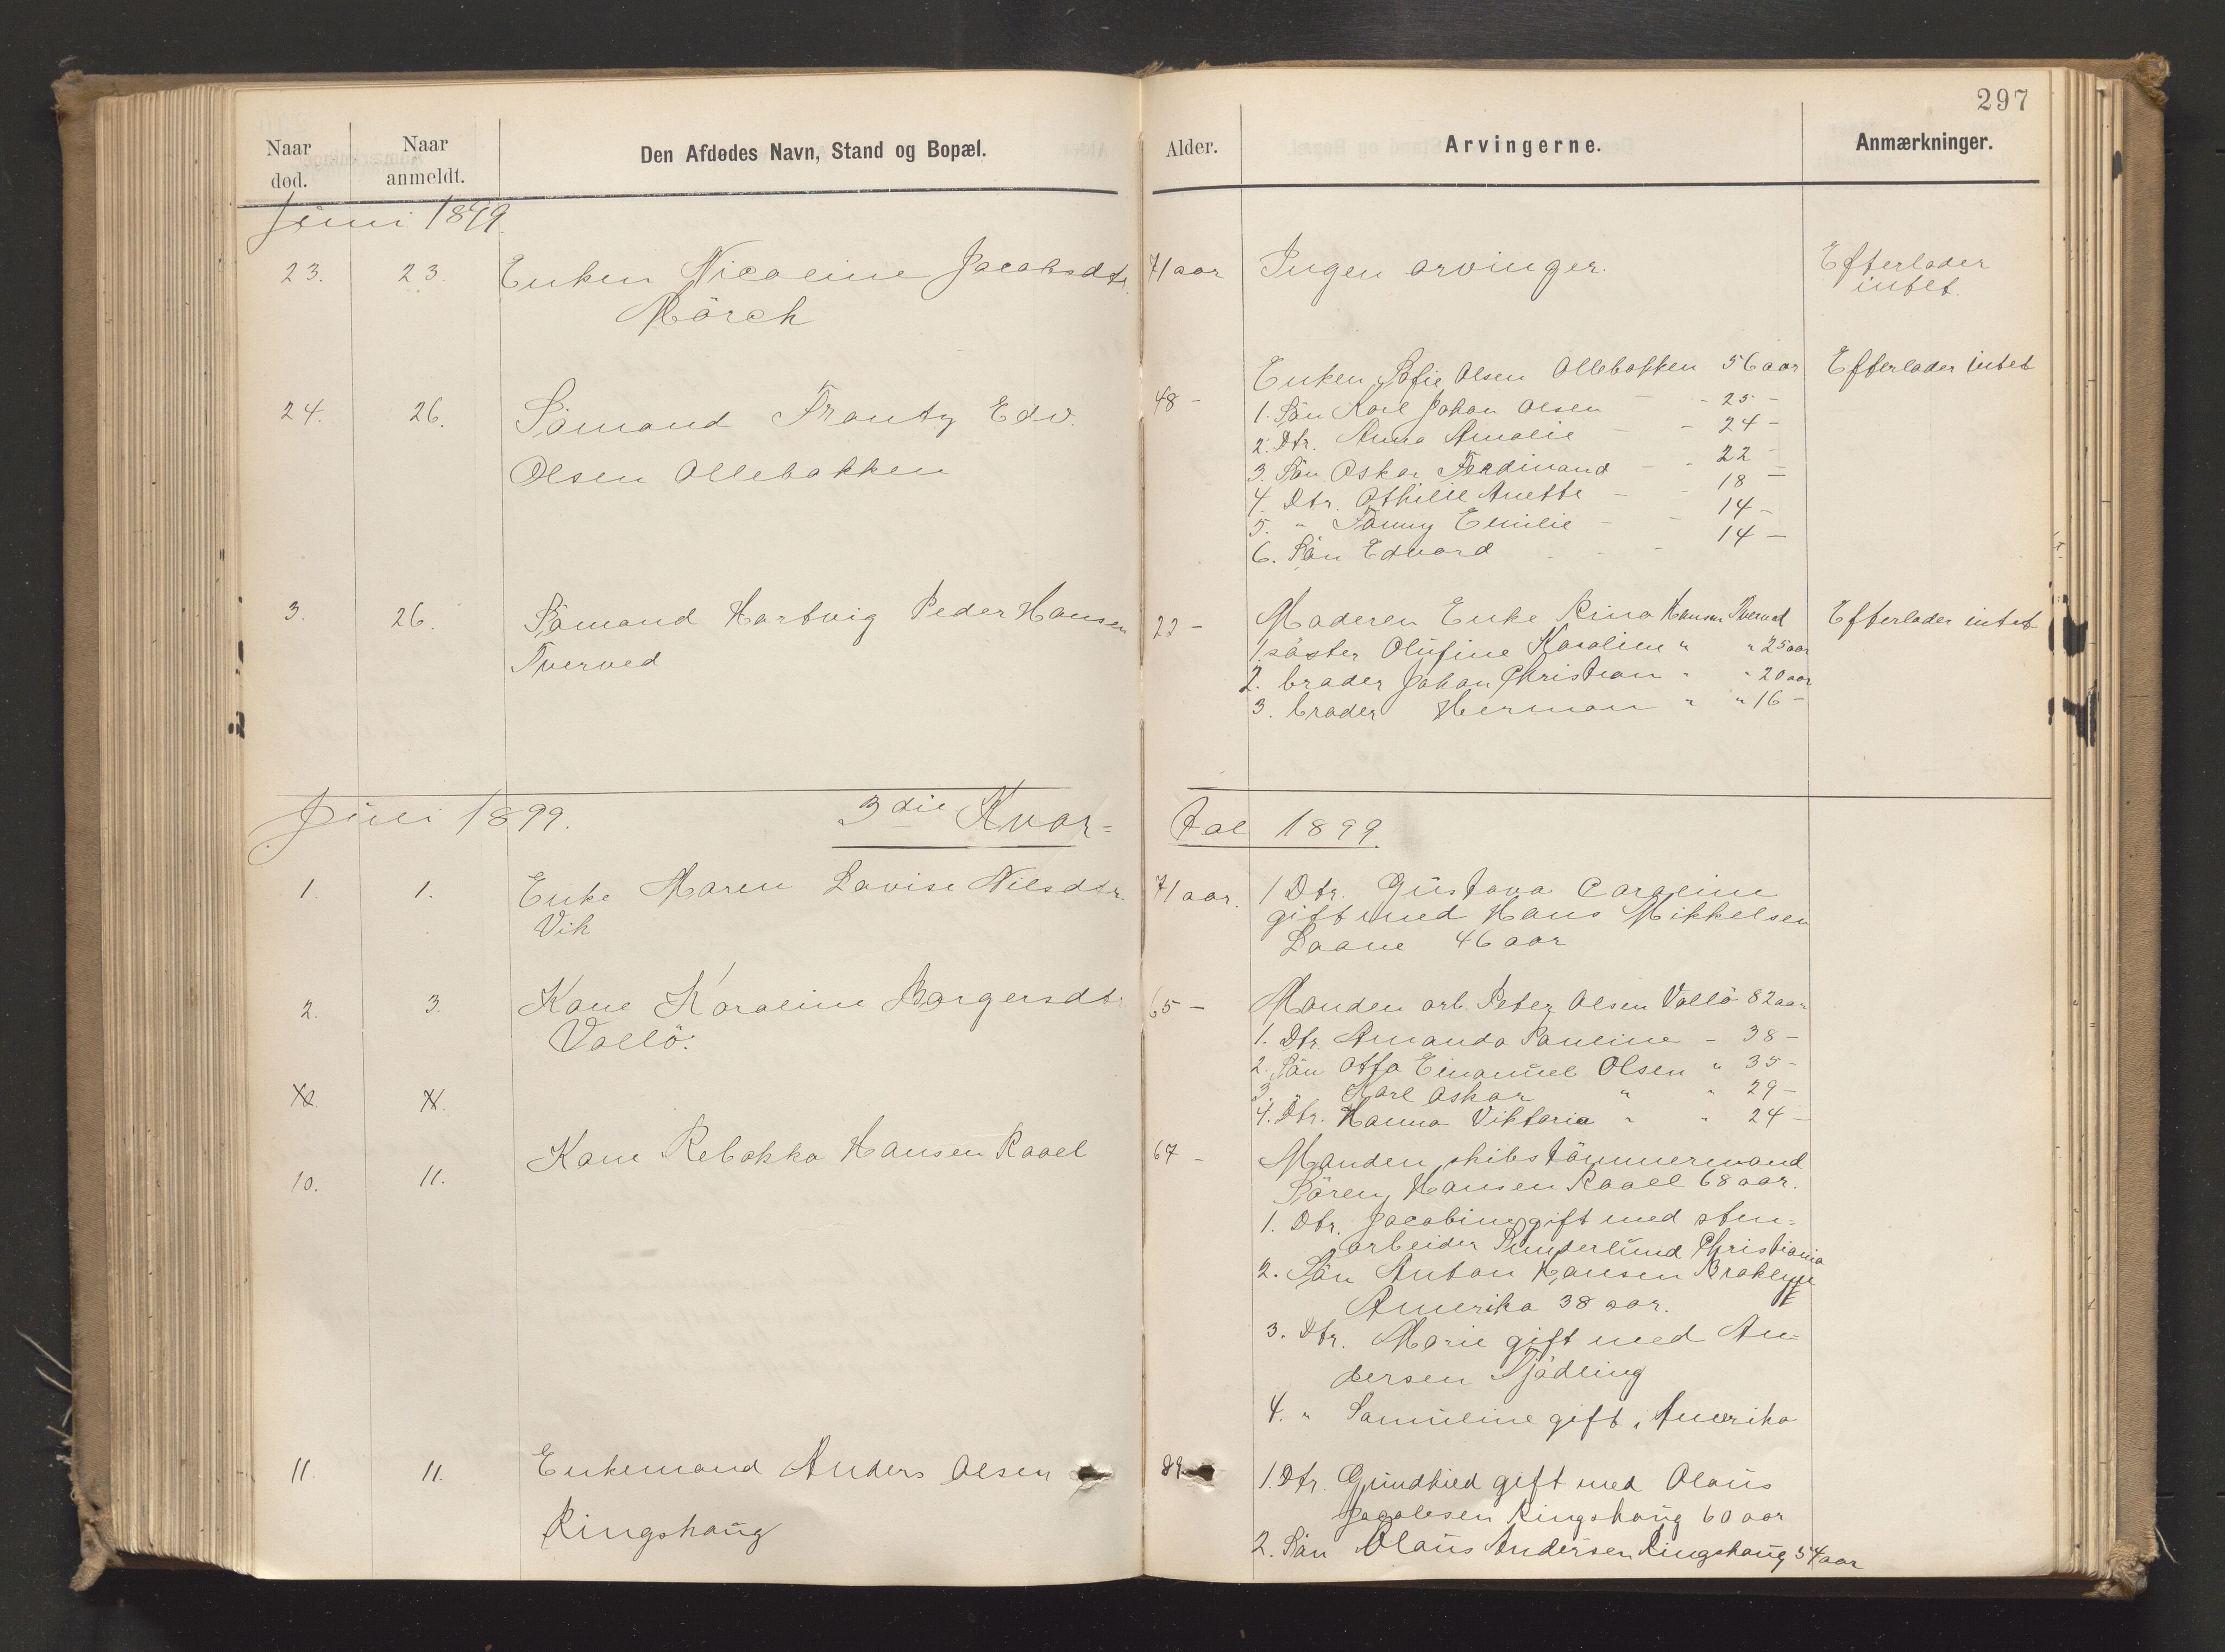 297
Naar død. Naar anmeldt. Den Afdødes Navn, Stand og Bopæl. Alder. Arvingerne. Anmærkninger.
Juni 1899.
23. 23. Enken Nicoline Jacobsdtr. 71 aar Ingen arvinger. Efterlader
Mörch intet.
Enken Sofie Olsen Ollebakken 56 aar Efterlader intet
24. 26. Sömand Frantz Edv. 48 - 1. Sön Karl Johan Olsen - - 25 -
2. Dtr. Anna Amalie - - 24 -
Olsen Ollebakken 3. Sön Oskar Ferdinand - - 22 -
4. Dtr. Othilie Anette - - 18 -
5. " Fanny Emilie - - 14 -
6. Sön Edvard - - 14 -
3. 26. Sömand Hartvig Peder Hansen 22 - Moderen Enke Rina Hansen Tverved Efterlader intet
Tverved 1. söster Olufine Karoline " " 25 aar
2. broder Johan Christian " " 20 aar
3. broder Herman " " 16 -
Juli 1899. 3die Kvar= tal 1899.
1. 1. Enke Maren Lovise Nilsdtr. 71 aar. 1 Dtr. Gustava Caroline
Vik gift med Hans Mikkelsen
Laane 46 aar
2. 3. Kone Karoline Borgersdtr 65 - Manden arb. Peter Olsen Vallö 82 aar
Vallö. 1. Dtr. Amanda Pauline - 38 -
2. Sön Otto Emanuel Olsen " 35 -
3. " Karl Oskar " " 29 -
4. Dtr. Hanna Viktoria " " 24 -
10. 11. Kone Rebekka Hansen Raael 67 - Manden, skibstömmermand
Sören Hansen Raael 68 aar.
1. Dtr. Jacobine gift med sten=
arbeider Sunderlund Christiania
2. Sön Anton Hansen Broklyn
Amerika 38 aar.
3. Dtr. Marie gift med An-
dersen Tjödling
4. " Samueline gift i Amerika
11. 11. Enkemand Anders Olsen 89 1. Dtr. Gundhild gift med Olaus
Ringshaug Jacobsen Ringshaug 60 aar
2. Sön Olaus Andersen Ringshaug 54 aar